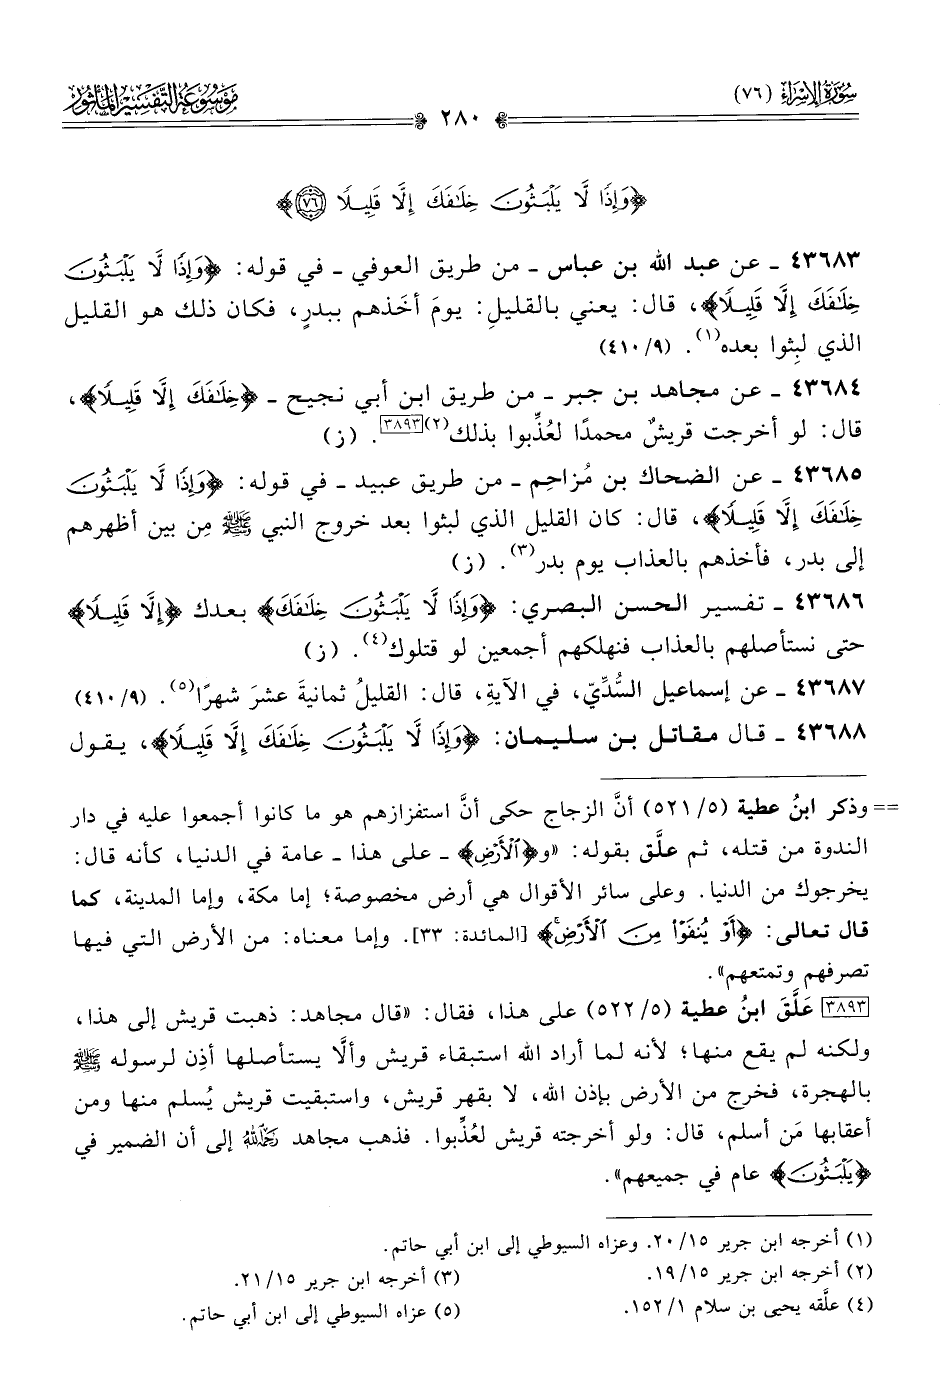 سُورَةُ الإِسْرَاءِ (٧٦)
٢٨٠
مَوْسُوعَةُ التَّفْسِيرِ المَأْثُور
﴿وَإِذًا لَّا يَلْبَثُونَ خِلَٰفَكَ إِلَّا قَلِيلًا ٧٦﴾
٤٣٦٨٣ ـ عن عبد الله بن عباس ـ من طريق العوفي ـ في قوله: ﴿وَإِذًا لَّا يَلْبَثُونَ
خِلَٰفَكَ إِلَّا قَلِيلًا﴾، قال: يعني بالقليلِ: يومَ أخَذهم ببدرٍ، فكان ذلك هو القليل
الذي لبِثوا بعده(١). (٩/ ٤١٠)
٤٣٦٨٤ ـ عن مجاهد بن جبر ـ من طريق ابن أبي نجيح ـ ﴿خِلَٰفَكَ إِلَّا قَلِيلًا﴾،
قال: لو أخرجت قريشٌ محمدًا لعُذِّبوا بذلك(٢)[٣٨٩٣]. (ز)
٤٣٦٨٥ ـ عن الضحاك بن مُزاحِم ـ من طريق عبيد ـ في قوله: ﴿وَإِذًا لَّا يَلْبَثُونَ
خِلَٰفَكَ إِلَّا قَلِيلًا﴾، قال: كان القليل الذي لبثوا بعد خروج النبي ﷺ مِن بين أظهرهم
إلى بدر، فأخذهم بالعذاب يوم بدر(٣). (ز)
٤٣٦٨٦ ـ تفسير الحسن البصري: ﴿وَإِذًا لَّا يَلْبَثُونَ خِلَٰفَكَ﴾ بعدك ﴿إِلَّا قَلِيلًا﴾
حتى نستأصلهم بالعذاب فنهلكهم أجمعين لو قتلوك(٤). (ز)
٤٣٦٨٧ ـ عن إسماعيل السُّدِّيّ، في الآيةِ، قال: القليلُ ثمانيةَ عشرَ شهرًا(٥). (٩/ ٤١٠)
٤٣٦٨٨ ـ قال مقاتل بن سليمان: ﴿وَإِذًا لَّا يَلْبَثُونَ خِلَٰفَكَ إِلَّا قَلِيلًا﴾، يقول
== وذكر ابنُ عطية (٥/ ٥٢١) أنَّ الزجاج حكى أنَّ استفزازهم هو ما كانوا أجمعوا عليه في دار
الندوة من قتله، ثم علَّق بقوله: «و﴿الْأَرْضِ﴾ ـ على هذا ـ عامة في الدنيا، كأنه قال:
يخرجوك من الدنيا. وعلى سائر الأقوال هي أرض مخصوصة؛ إما مكة، وإما المدينة، كما
قال تعالى: ﴿أَوْ يُنفَوْا مِنَ الْأَرْضِ﴾ [المائدة: ٣٣]. وإما معناه: من الأرض التي فيها
تصرفهم وتمتعهم».
[٣٨٩٣] عَلَّقَ ابنُ عطية (٥/ ٥٢٢) على هذا، فقال: «قال مجاهد: ذهبت قريش إلى هذا،
ولكنه لم يقع منها؛ لأنه لما أراد الله استبقاء قريش وألَّا يستأصلها أذِن لرسوله ﷺ
بالهجرة، فخرج من الأرض بإذن الله، لا بقهر قريش، واستبقيت قريش يُسلم منها ومن
أعقابها مَن أسلم، قال: ولو أخرجته قريش لعُذِّبوا. فذهب مجاهد رَحِمَهُ اللهُ إلى أن الضمير في
﴿يَلْبَثُونَ﴾ عام في جميعهم».
(١) أخرجه ابن جرير ١٥/ ٢٠. وعزاه السيوطي إلى ابن أبي حاتم.
(٢) أخرجه ابن جرير ١٥/ ١٩. (٣) أخرجه ابن جرير ١٥/ ٢١.
(٤) علَّقه يحيى بن سلام ١/ ١٥٢. (٥) عزاه السيوطي إلى ابن أبي حاتم.